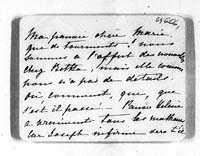 Ma pauvre chère Marie
que de tourments ! nous
sommes à l'affût des nouvelles
chez Berthe, mais elle comme
nous n'a pas de détails.
où comment, que, que
s'est-il passé - Pauvre
a vraiment tous les malheurs
Joseph infirme sera